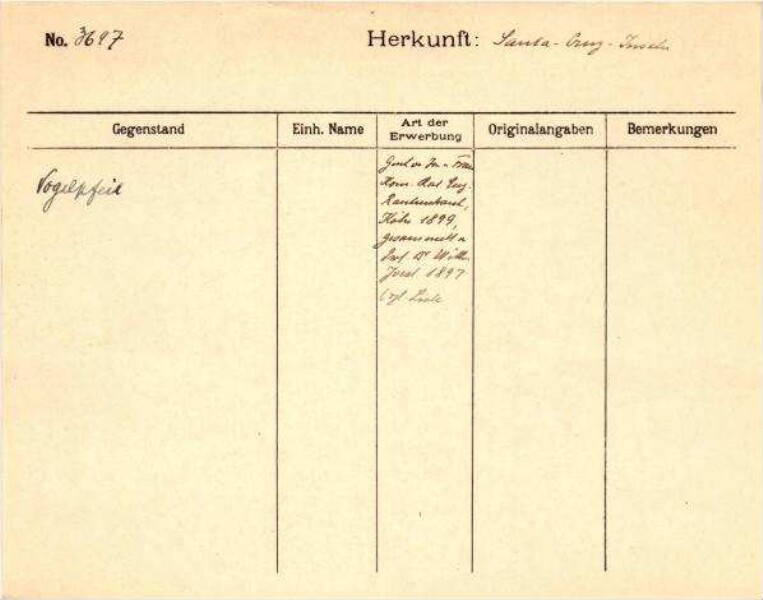 No. 3697
Herkunft: Santa-Cruz-Inseln
Gegenstand
Einh. Name
Art der
Erwerbung
Originalangaben
Bemerkungen
Vogelpfeil
Gesch. v. Hn. u. Frau
Kom. Rat Eug.
Rautenstrauch,
Köln 1899,
gesammelt v.
Prof. Dr Wilh.
Joest 1897